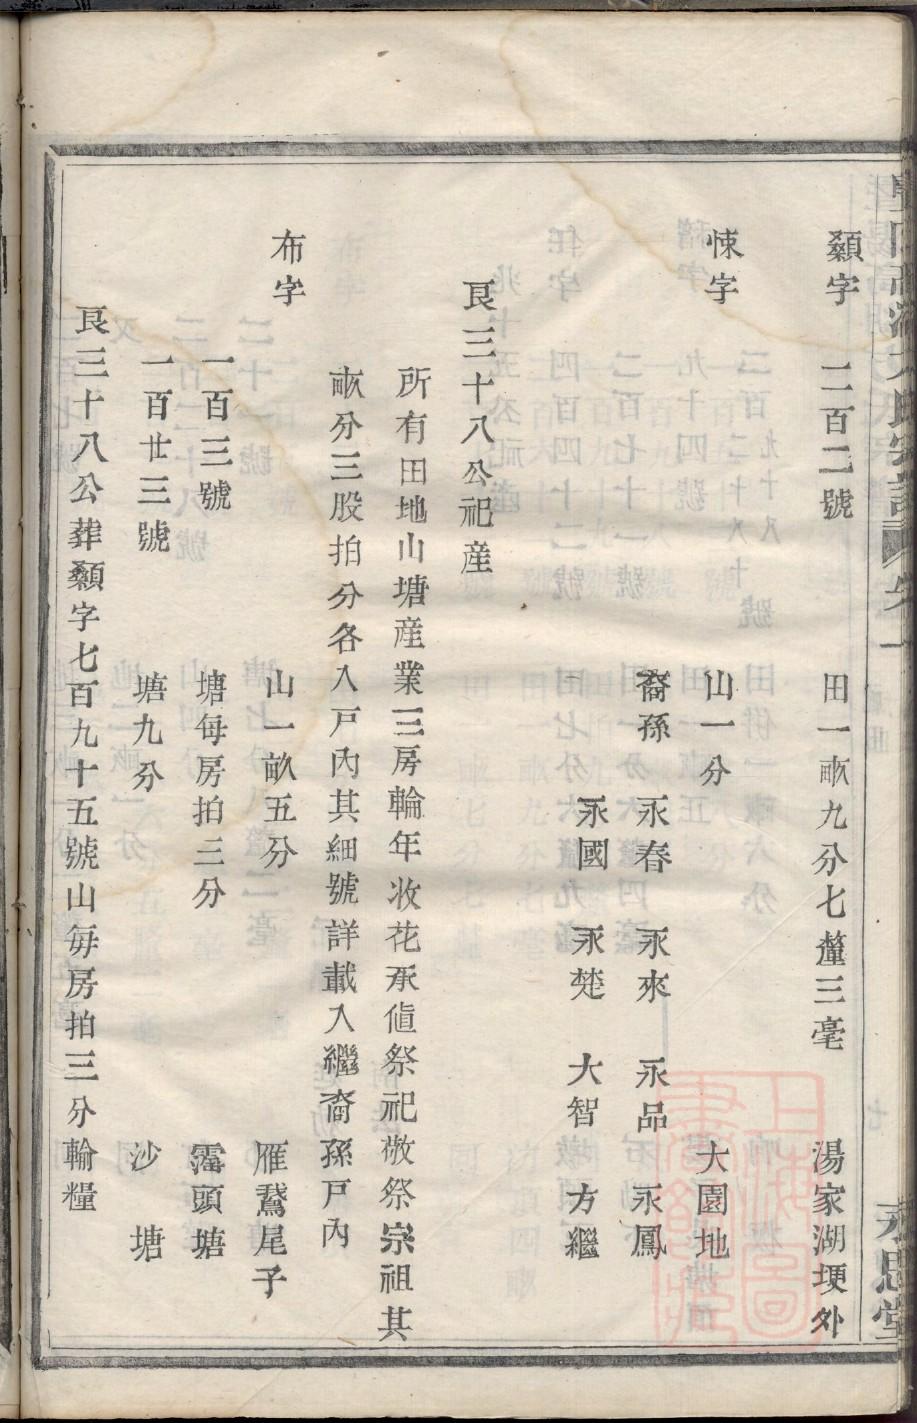 顙字　二百二號　田一畝九分七釐三毫　湯家湖埂外
悚字　山一分　大園地
裔孫　永春　永來　永品　永鳳
永國　永楚　大智　方繼
艮三十八公祀産
所有田地山塘産業三房輪年收花承値祭祀敬祭宗祖其
畝分三股拍分各入戸內其細號詳載入繼裔孫戸內
布字　山一畝五分　雁鵞尾子
一百三號　塘每房拍三分　霈頭塘
一百廿三號　塘九分　沙塘
艮三十八公葬顙字七百九十五號山每房拍三分輸糧
永思堂